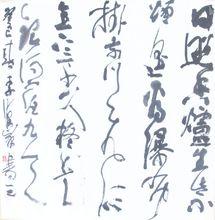 日照香爐生紫
烟遥看瀑布
挂前川飞流
直下三千尺疑是
银河落九天
癸巳春李